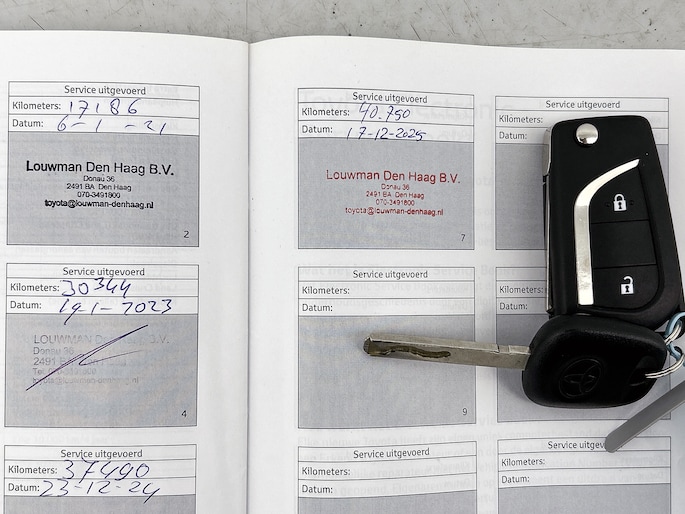 Service uitgevoerd
Kilometers: 17186
Datum: 6-1-21
Louwman Den Haag B.V.
Donau 36
2491 BA Den Haag
070-3491800
toyota@louwman-denhaag.nl
2
Service uitgevoerd
Kilometers: 30344
Datum: 19-1-2023
LOUWMAN Den Haag B.V.
Donau 36
2491
toyota@louwman-denhaag.nl
4
Service uitgevoerd
Kilometers: 37490
Datum: 23-12-24
Service uitgevoerd
Kilometers: 40.750
Datum: 17-12-2025
Louwman Den Haag B.V.
Donau 36
2491 BA Den Haag
070-3491800
toyota@louwman-denhaag.nl
7
Service uitgevoerd
Kilometers:
Datum:
9
Service uitgevoerd
Kilometers:
Datum:
Service uitgevoerd
Kilometers:
Datum:
Service uitgevoerd
Kilometers:
Datum:
Service uitgevoerd
Kilometers:
Datum: